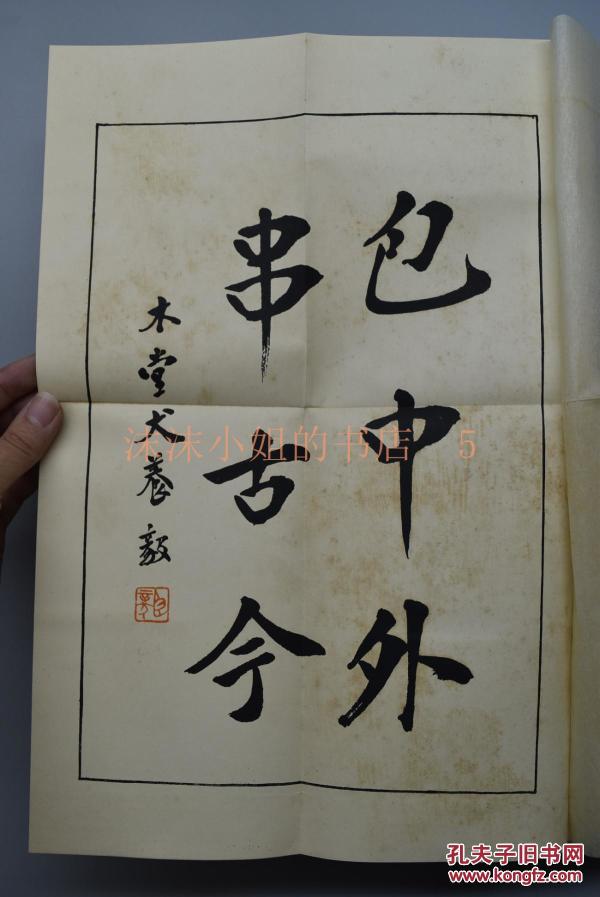 包中外
串古今
木堂犬養毅
沫沫小姐的书店 5
孔夫子旧书网
www.kongfz.com